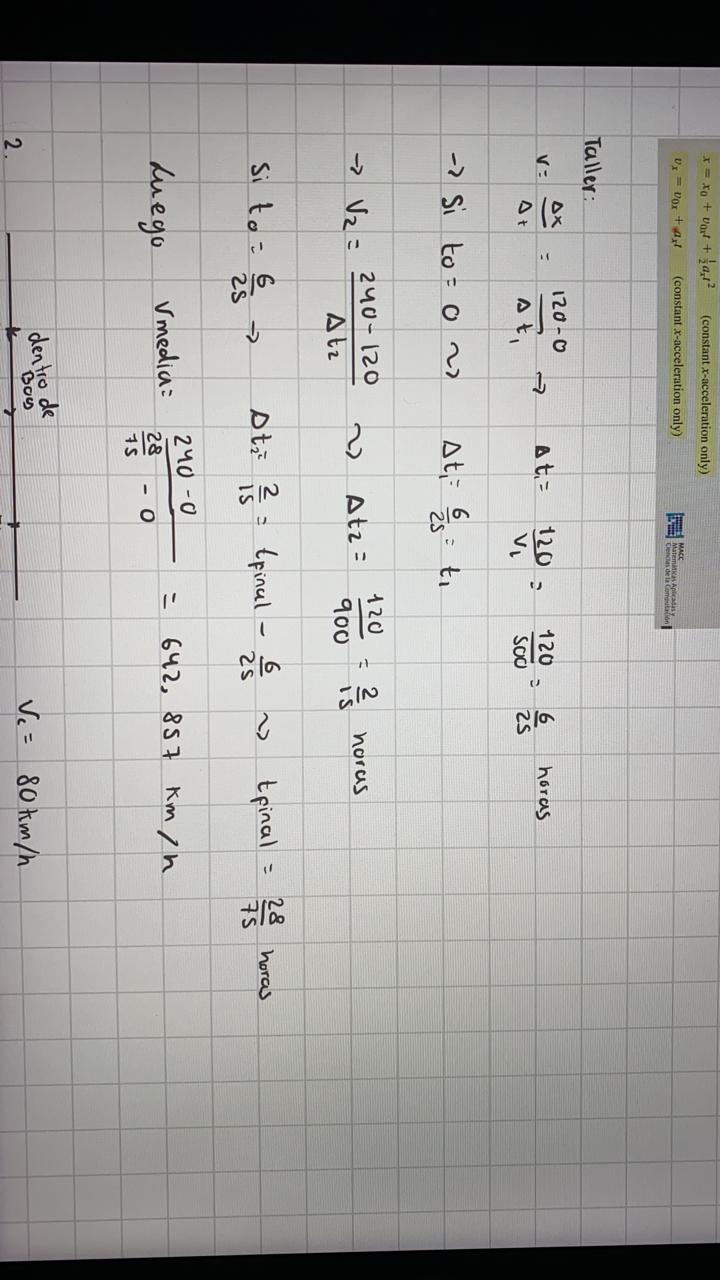 x = x₀ + v₀ₓt + ½aₓt² (constant x-acceleration only)
vₓ = v₀ₓ + aₓt (constant x-acceleration only)
MACC
Matemáticas Aplicadas y
Ciencias de la Computación
Taller:
v = Δx/Δt = (120-0)/Δt₁ → Δt₁ = 120/V₁ = 120/500 = 6/25 horas
→ Si t0 = 0 ⇝ Δt₁ = 6/25 = t₁
→ V2 = (240-120)/Δt2 ⇝ Δt2 = 120/900 = 2/15 horas
Si t0 = 6/25 → Δt2 = 2/15 = tfinal - 6/25 ⇝ tfinal = 28/75 horas
Luego Vmedia = (240-0)/(28/75 - 0) = 642,857 Km/h
dentro de
2. Vc = 80 km/h